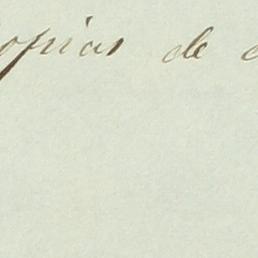 opias de